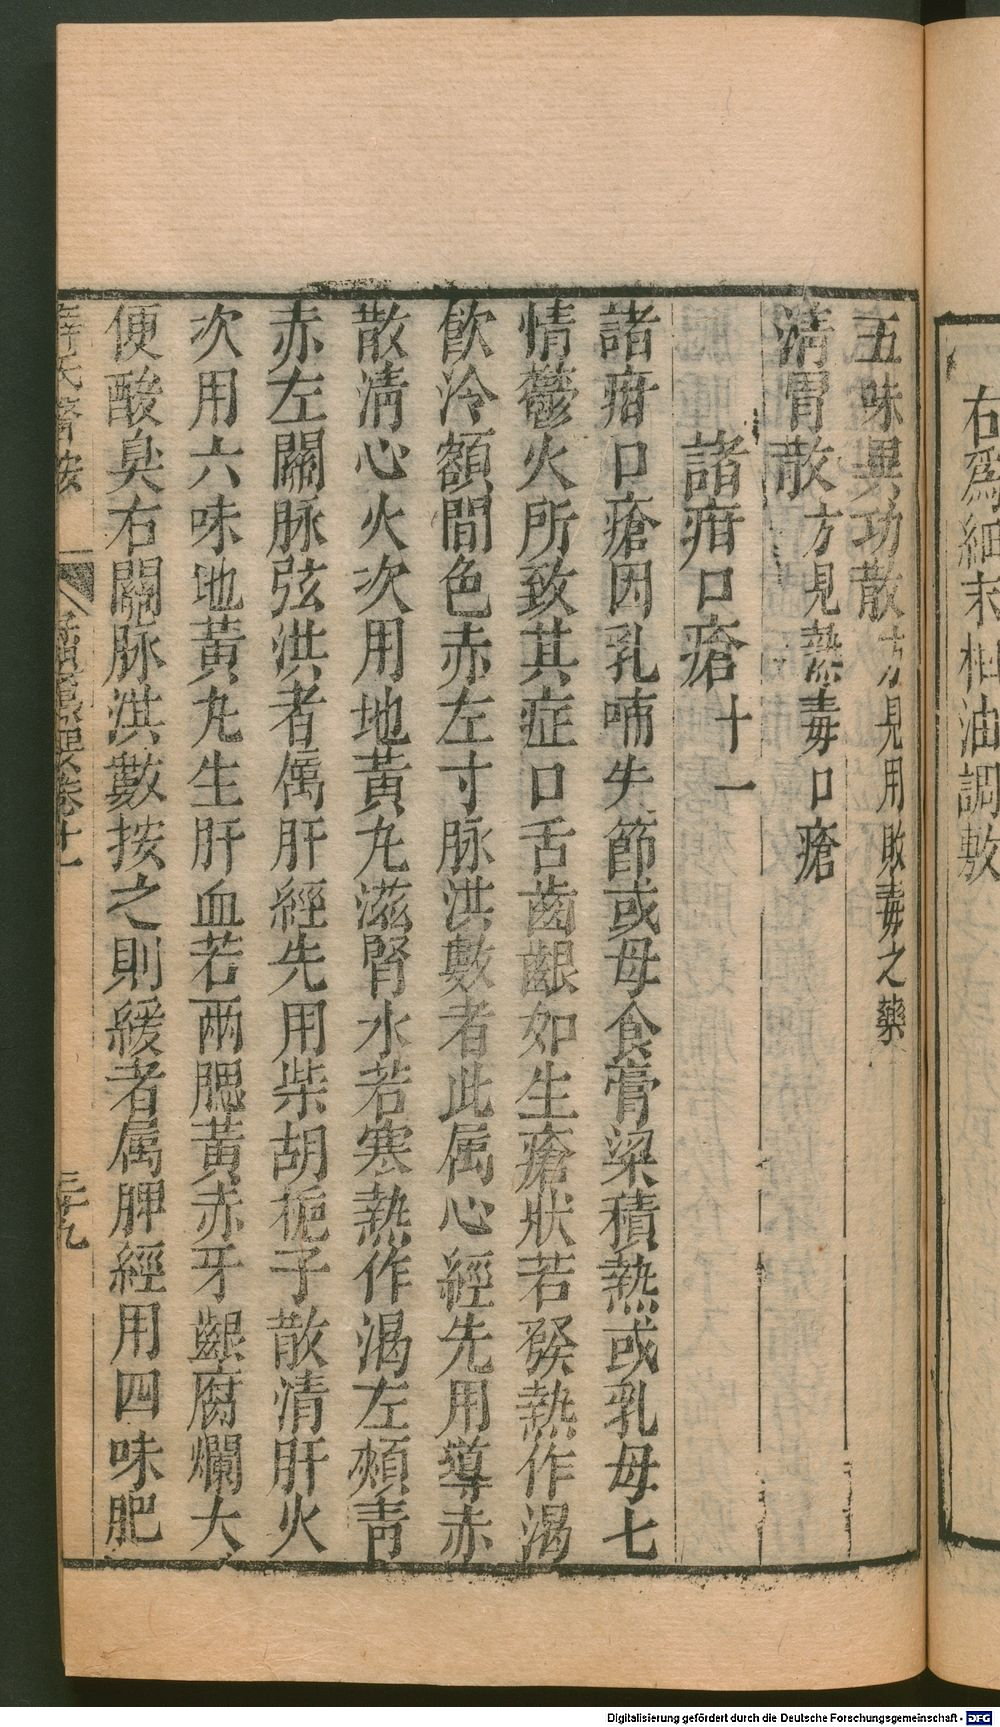 右為細末柏油調敷
五味異功散方見用敗毒之藥
清胃散方見熱毒口瘡
諸疳口瘡十一
諸疳口瘡因乳哺失節或母食膏粱積熱或乳母七
情鬱火所致其症口舌齒齦如生瘡狀若發熱作渴
飲冷額間色赤左寸脉洪數者此属心經先用導赤
散清心火次用地黃丸滋腎水若寒熱作渴左頰青
赤左關脉弦洪者属肝經先用柴胡梔子散清肝火
次用六味地黃丸生肝血若兩腮黃赤牙齦腐爛大
便酸臭右關脉洪數按之則緩者属脾經用四味肥
薛氏醫按 卷十一 三十九
Digitalisierung gefördert durch die Deutsche Forschungsgemeinschaft - DFG